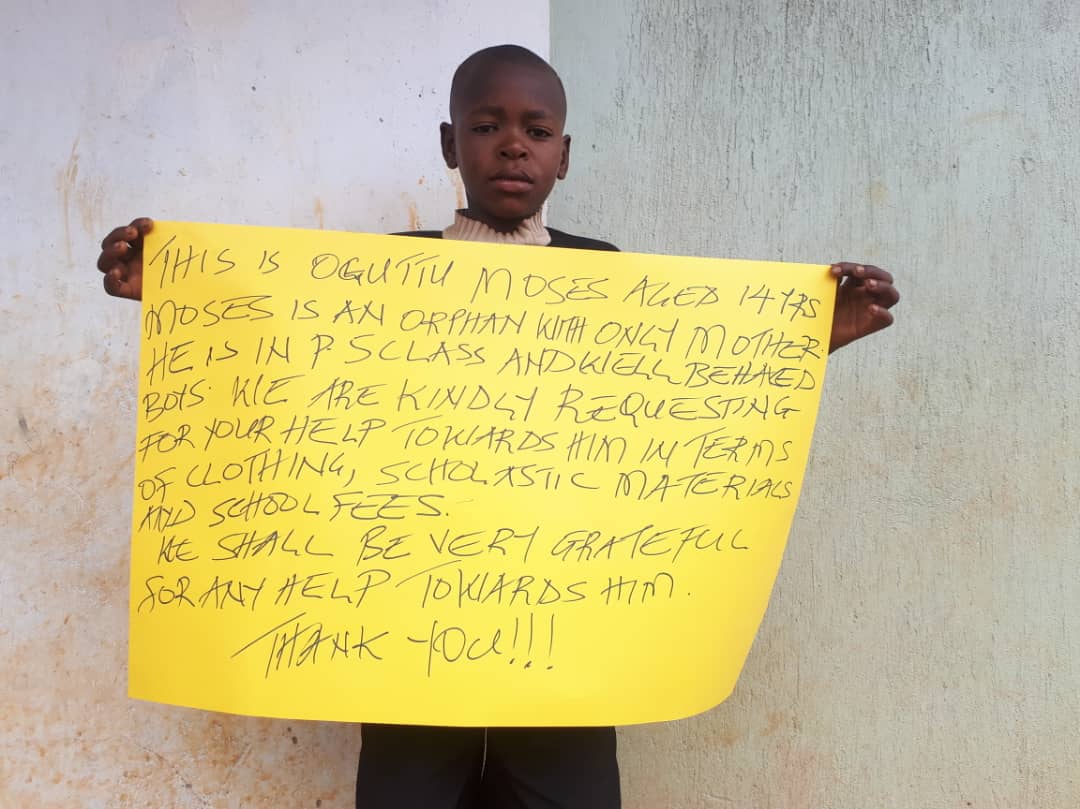 THIS IS OGUTTU MOSES AGED 14YRS
MOSES IS AN ORPHAN WITH ONLY MOTHER.
HE IS IN P.5CLASS AND WELL BEHAVED
BOYS. WE ARE KINDLY REQUESTING
FOR YOUR HELP TOWARDS HIM IN TERMS
OF CLOTHING, SCHOLASTIC MATERIALS
AND SCHOOL FEES.
WE SHALL BE VERY GRATEFUL
FOR ANY HELP TOWARDS HIM.
THANK YOU!!!